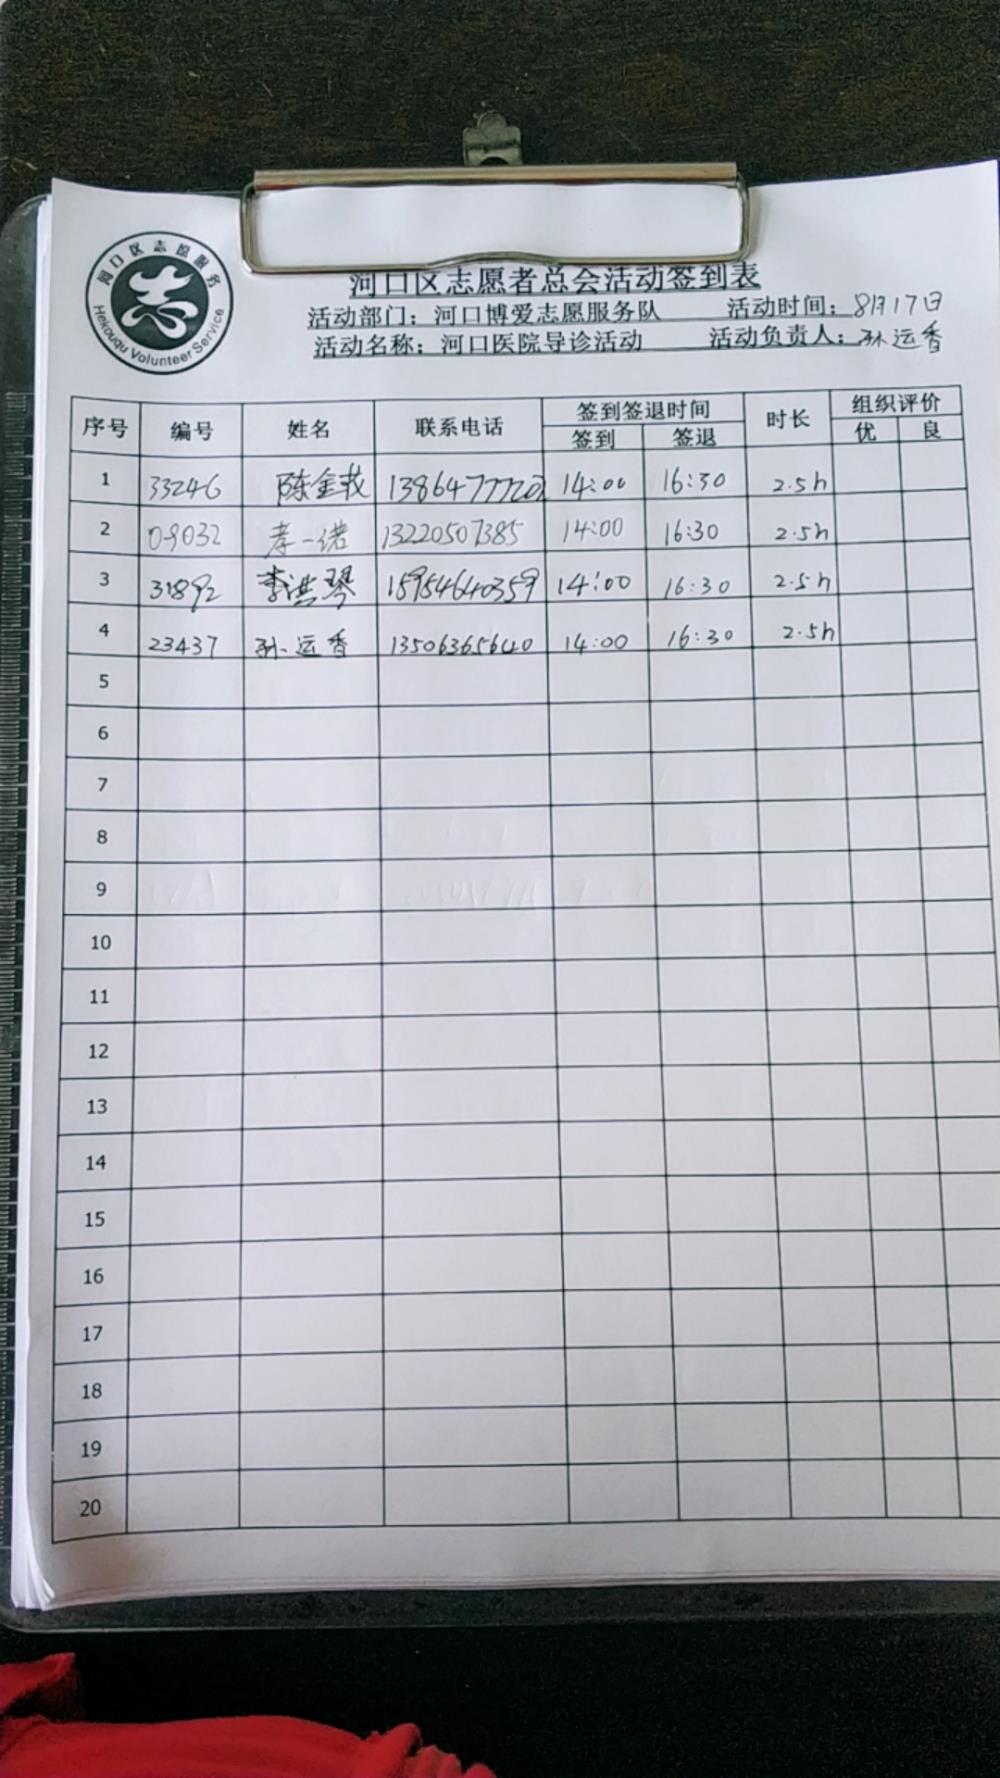 河口区志愿服务
Hekouqu Volunteer Service
河口区志愿者总会活动签到表
活动部门：河口博爱志愿服务队 活动时间：8月17日
活动名称：河口医院导诊活动 活动负责人：孙运香
序号 编号 姓名 联系电话 签到签退时间 时长 组织评价
签到 签退 优 良
1 33246 陈金 13864777720 14:00 16:30 2.5h
2 09032 一诺 13220507385 14:00 16:30 2.5h
3 31892 李洪琴 15954640359 14:00 16:30 2.5h
4 23437 孙运香 13506365640 14:00 16:30 2.5h
5
6
7
8
9
10
11
12
13
14
15
16
17
18
19
20